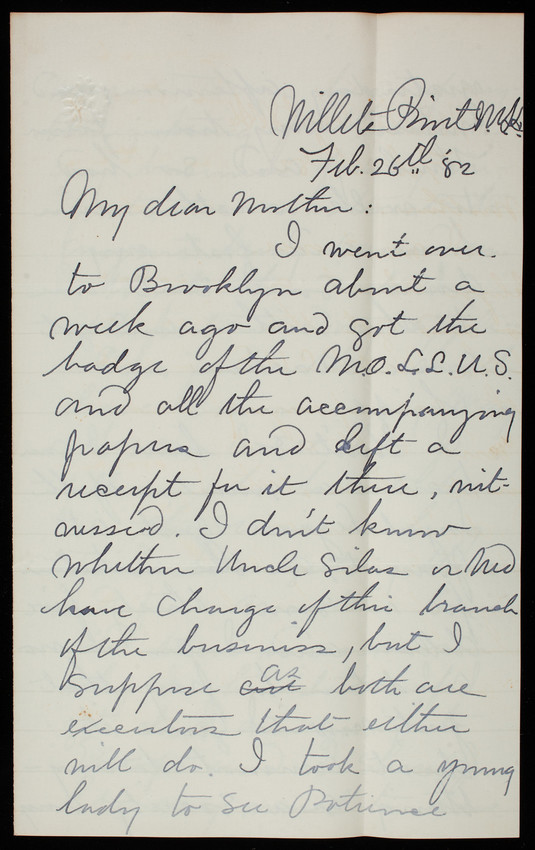 Willets Point N.Y.
Feb. 26th '82
My dear Mother:
I went over
to Brooklyn about a
week ago and got the
badge of the M.O.L.L.U.S.
and all the accompanying
papers and left a
receipt for it there, wit-
nessed. I don't know
whether Uncle Silas or Ned
have charge of this branch
of the business, but I
suppose as both are
executors that either
will do. I took a young
lady to see Patience